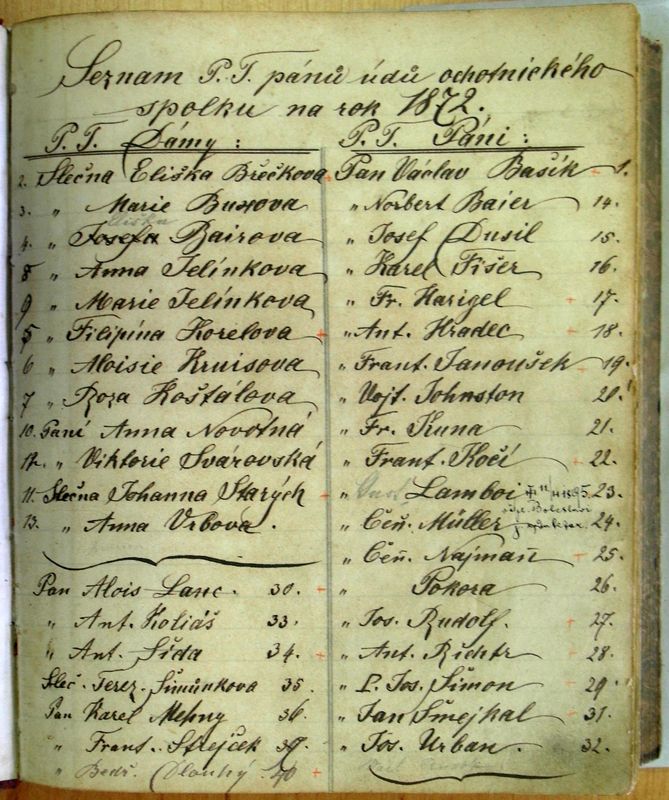 Seznam P. T. pánů údů ochotnického
spolku na rok 1872.
P. T. Dámy :
2. Slečna Eliška Břečkova
3. „ Marie Buxova
4. „ Josefa Bairova
8 „ Anna Jelínkova
9 „ Marie Jelínkova
5 „ Filipína Korelova
6 „ Aloisie Kruisova
7 „ Roza Košťálova
10. Paní Anna Novotná
12. „ Viktorie Svárovská
11. Slečna Johanna Starých
13. „ Anna Vrbova.
Pan Alois Lanc. 30.
„ Ant. Koliáš 33.
„ Ant. Šída 34.
Sleč. Terez. Šimůnkova 35.
Pan Karel Mehny 36.
„ Frant. Strejček 39.
„ Bedř. Dlouhý 40
P. T. Páni :
Pan Václav Bašík 1.
„ Norbert Baier 14.
„ Josef Dusil 15.
„ Karel Fišer 16.
„ Fr. Harigel 17.
„ Ant. Hradec 18.
„ Frant. Janoušek 19.
„ Vojt. Johnston 20.
„ Fr. Kuna 21.
„ Frant. Kočí 22.
„ Lamboi 23.
„ Čeň. Müller 24.
„ Čeň. Najman 25.
„ Pokora 26.
„ Jos. Rudolf. 27.
„ Ant. Richtr 28.
„ P. Jos. Šimon 29.
„ Jan Šmejkal 31.
„ Jos. Urban. 32.